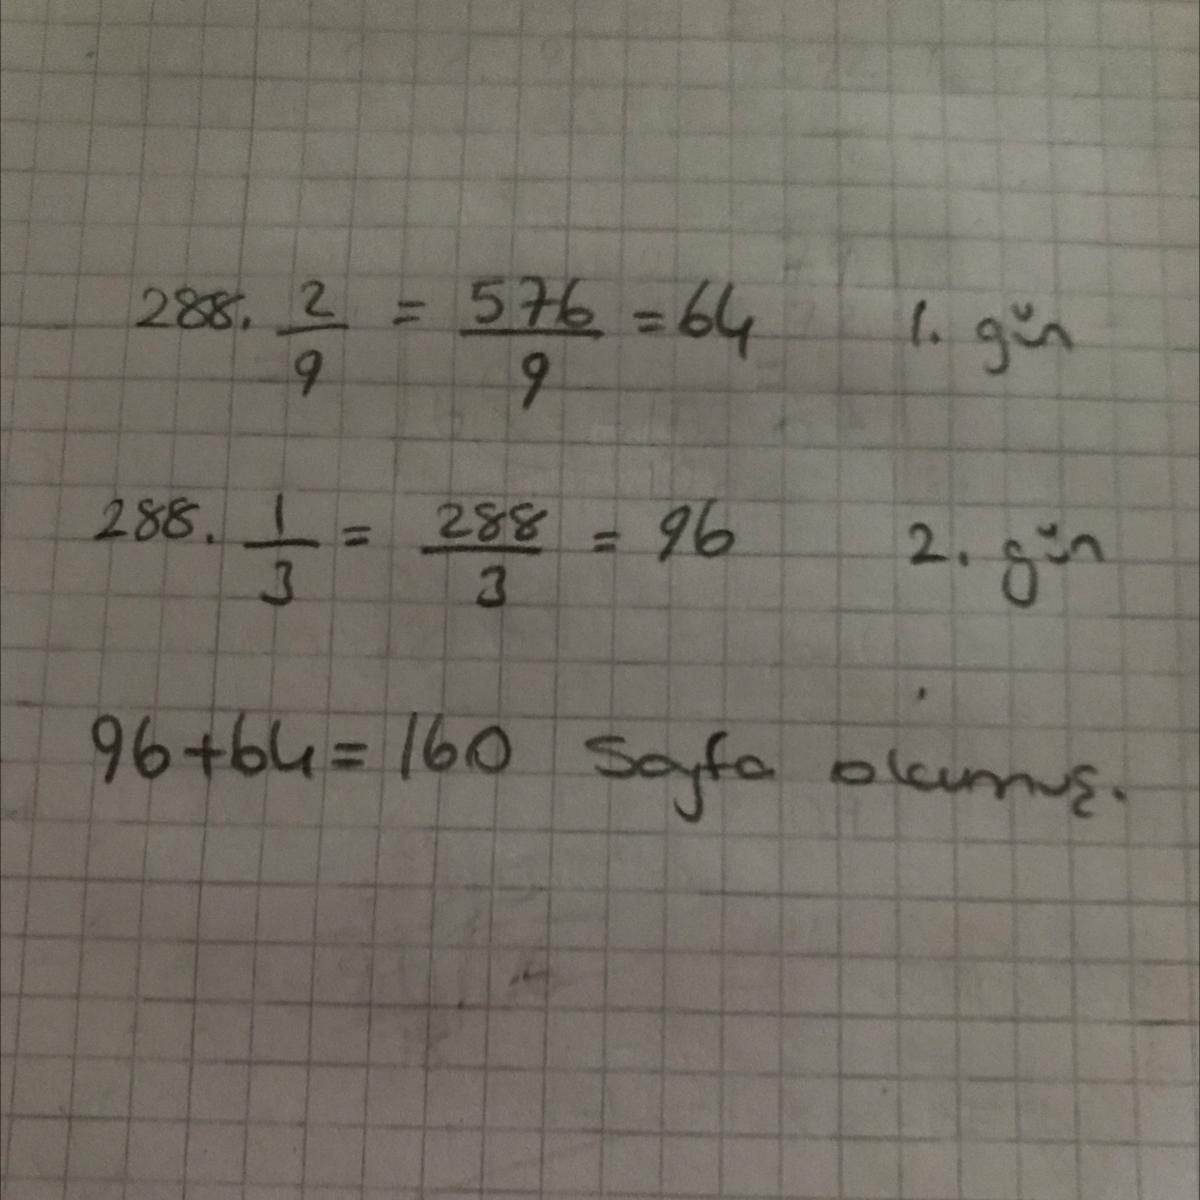 288. 2/9 = 576/9 = 64 1. gün
288. 1/3 = 288/3 = 96 2. gün
96+64=160 Sayfa okumuş.